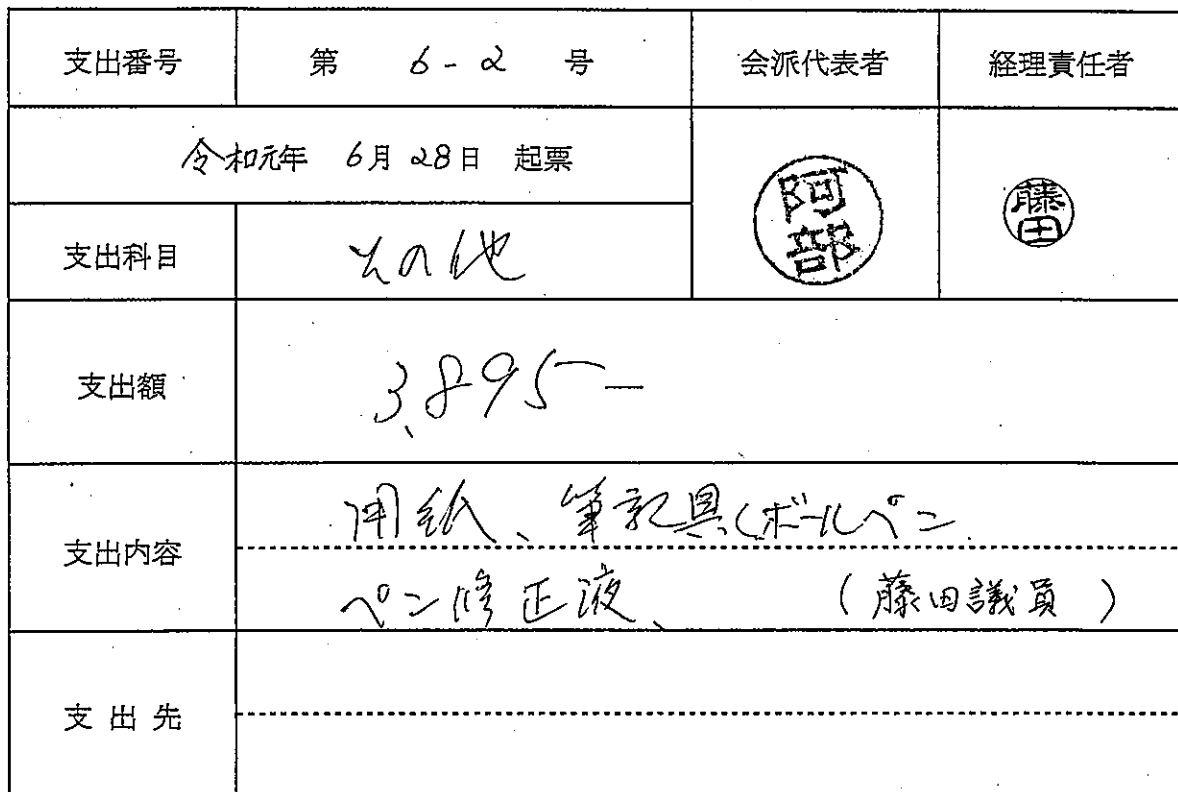 支出番号 第 6-2 号 会派代表者 経理責任者
令和元年 6月28日 起票
阿部
藤田
支出科目 その他
支出額 3,895-
用紙、筆記具(ボールペン
支出内容
ペン修正液、 (藤田議員)
支出先